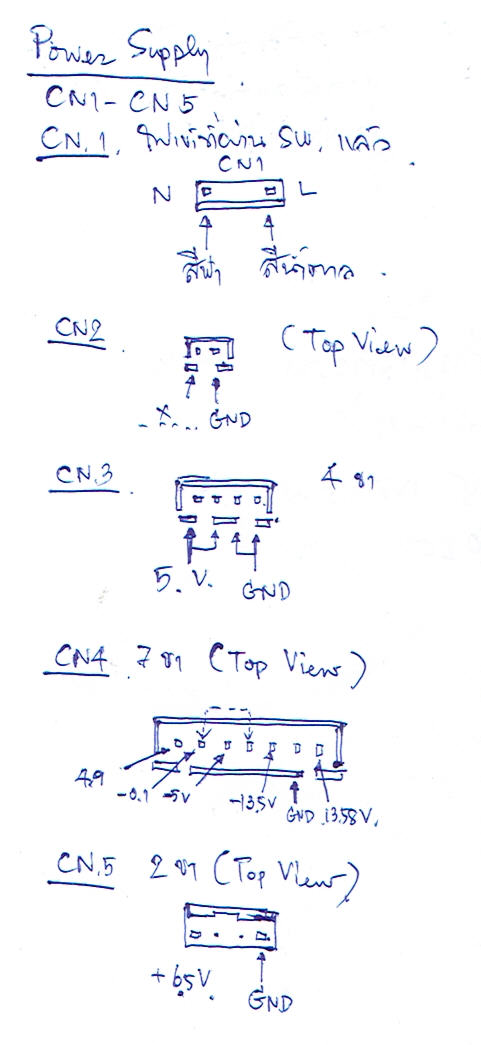 Power Supply
CN1 - CN5
CN.1. ไฟเข้าที่ผ่าน SW. แล้ว
CN1
N L
สีฟ้า สีน้ำตาล.
CN2 (Top View)
GND
CN.3. 4 ขา
5. V. GND
CN4 7 ขา (Top View)
4.9 -0.1 -5V -13.5V GND 13.58V.
CN.5 2 ขา (Top View)
+65V. GND